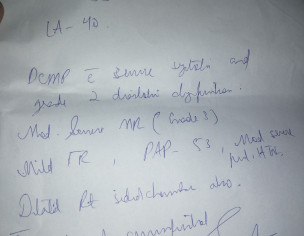 LA - 40.
DCMP c̄ severe systolic and
grade 2 diastolic dysfunction.
Mod. Severe MR (Grade 3)
Mild TR, PAP - 53, Mod severe
pul. HTN.
Dilated Rt sided chambers also.